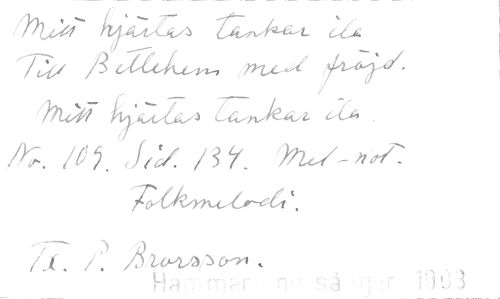 Mitt hjärtas tankar ila
Till Betlehem med fröjd.
Mitt hjärtas tankar ila.
No. 109. Sid. 134. Mel-not.
Folkmelodi.
Tx. P. Brorsson.
1903